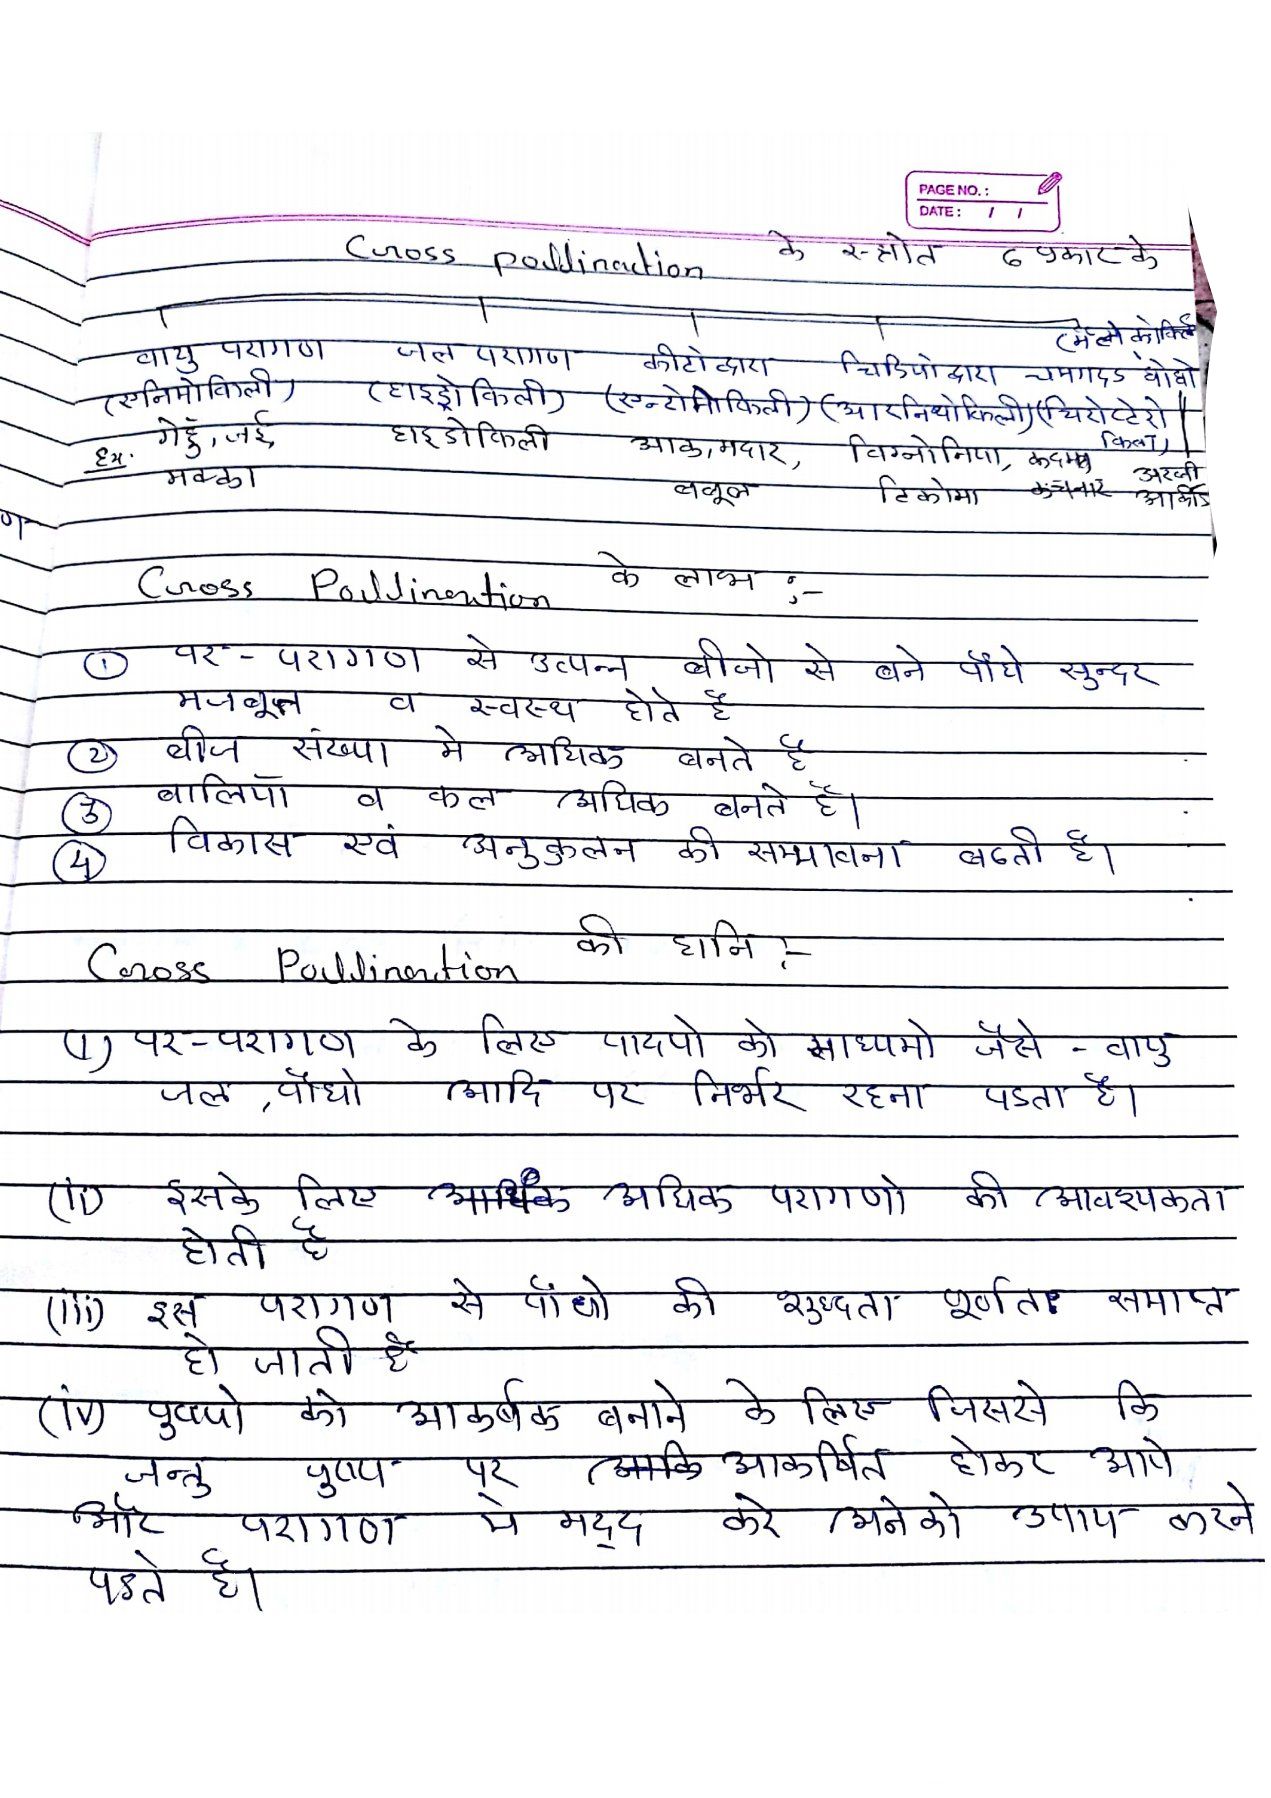 PAGE NO. :
DATE : / /
Cross pollination के स्त्रोत 6 प्रकार के
(मेलेकोकिली
वायु परागण जल परागण कीटो द्वारा चिडियो द्वारा चमगदड घोंघो
(एनिमोकिली) (हाइड्रोकिली) (एन्टोमोकिली) (आरनिथोकिली) (चिरोप्टेरो
किली)
Ex. गेहुँ, जई, हाइड्रोकिली आक, मदार, विग्नोनिया, कदम्ब अरबी
मक्का बबूल टिकोमा कचनार आर्कीड
ण
Cross Pollination के लाभ :-
① पर - परागण से उत्पन्न बीजो से बने पौधे सुन्दर
मजबूत व स्वस्थ होते है
② बीज संख्या मे अधिक बनते है
③ बालियाँ व फल अधिक बनते है।
④ विकास एवं अनुकुलन की सम्भावना बढती है।
Cross Pollination की हानि :-
(i) पर-परागण के लिए पादपो को माध्यमो जैसे - वायु
जल, पौधो आदि पर निर्भर रहना पडता है।
(ii) इसके लिए अधिक परागणो की आवश्यकता
होती है
(iii) इस परागण से पौधो की शुध्दता पूर्णतः समाप्त
हो जाती है
(iv) पुष्पो को आकर्षक बनाने के लिए जिससे कि
जन्तु पुष्प पर आकर्षित होकर आये
और परागण मे मद्द करे अनेको उपाय करने
पडते है।